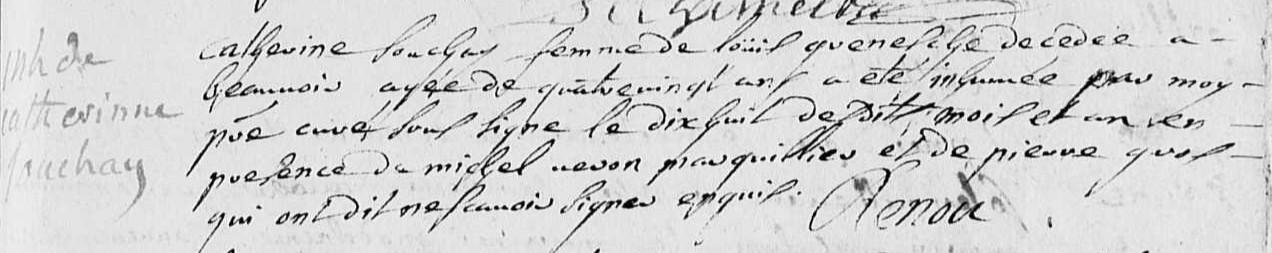 inh de
catterinne
souchay
catherine souchay femme de loüis quenesche decedée a
beauuoir agée de quatrevingt ans a eté inhumée par moy
pre curé sous signe le dixhuit desdits mois et an en
presence de michel neron marguillier et de pierre gros
qui ont dit ne scauoir signer enquis. Renou